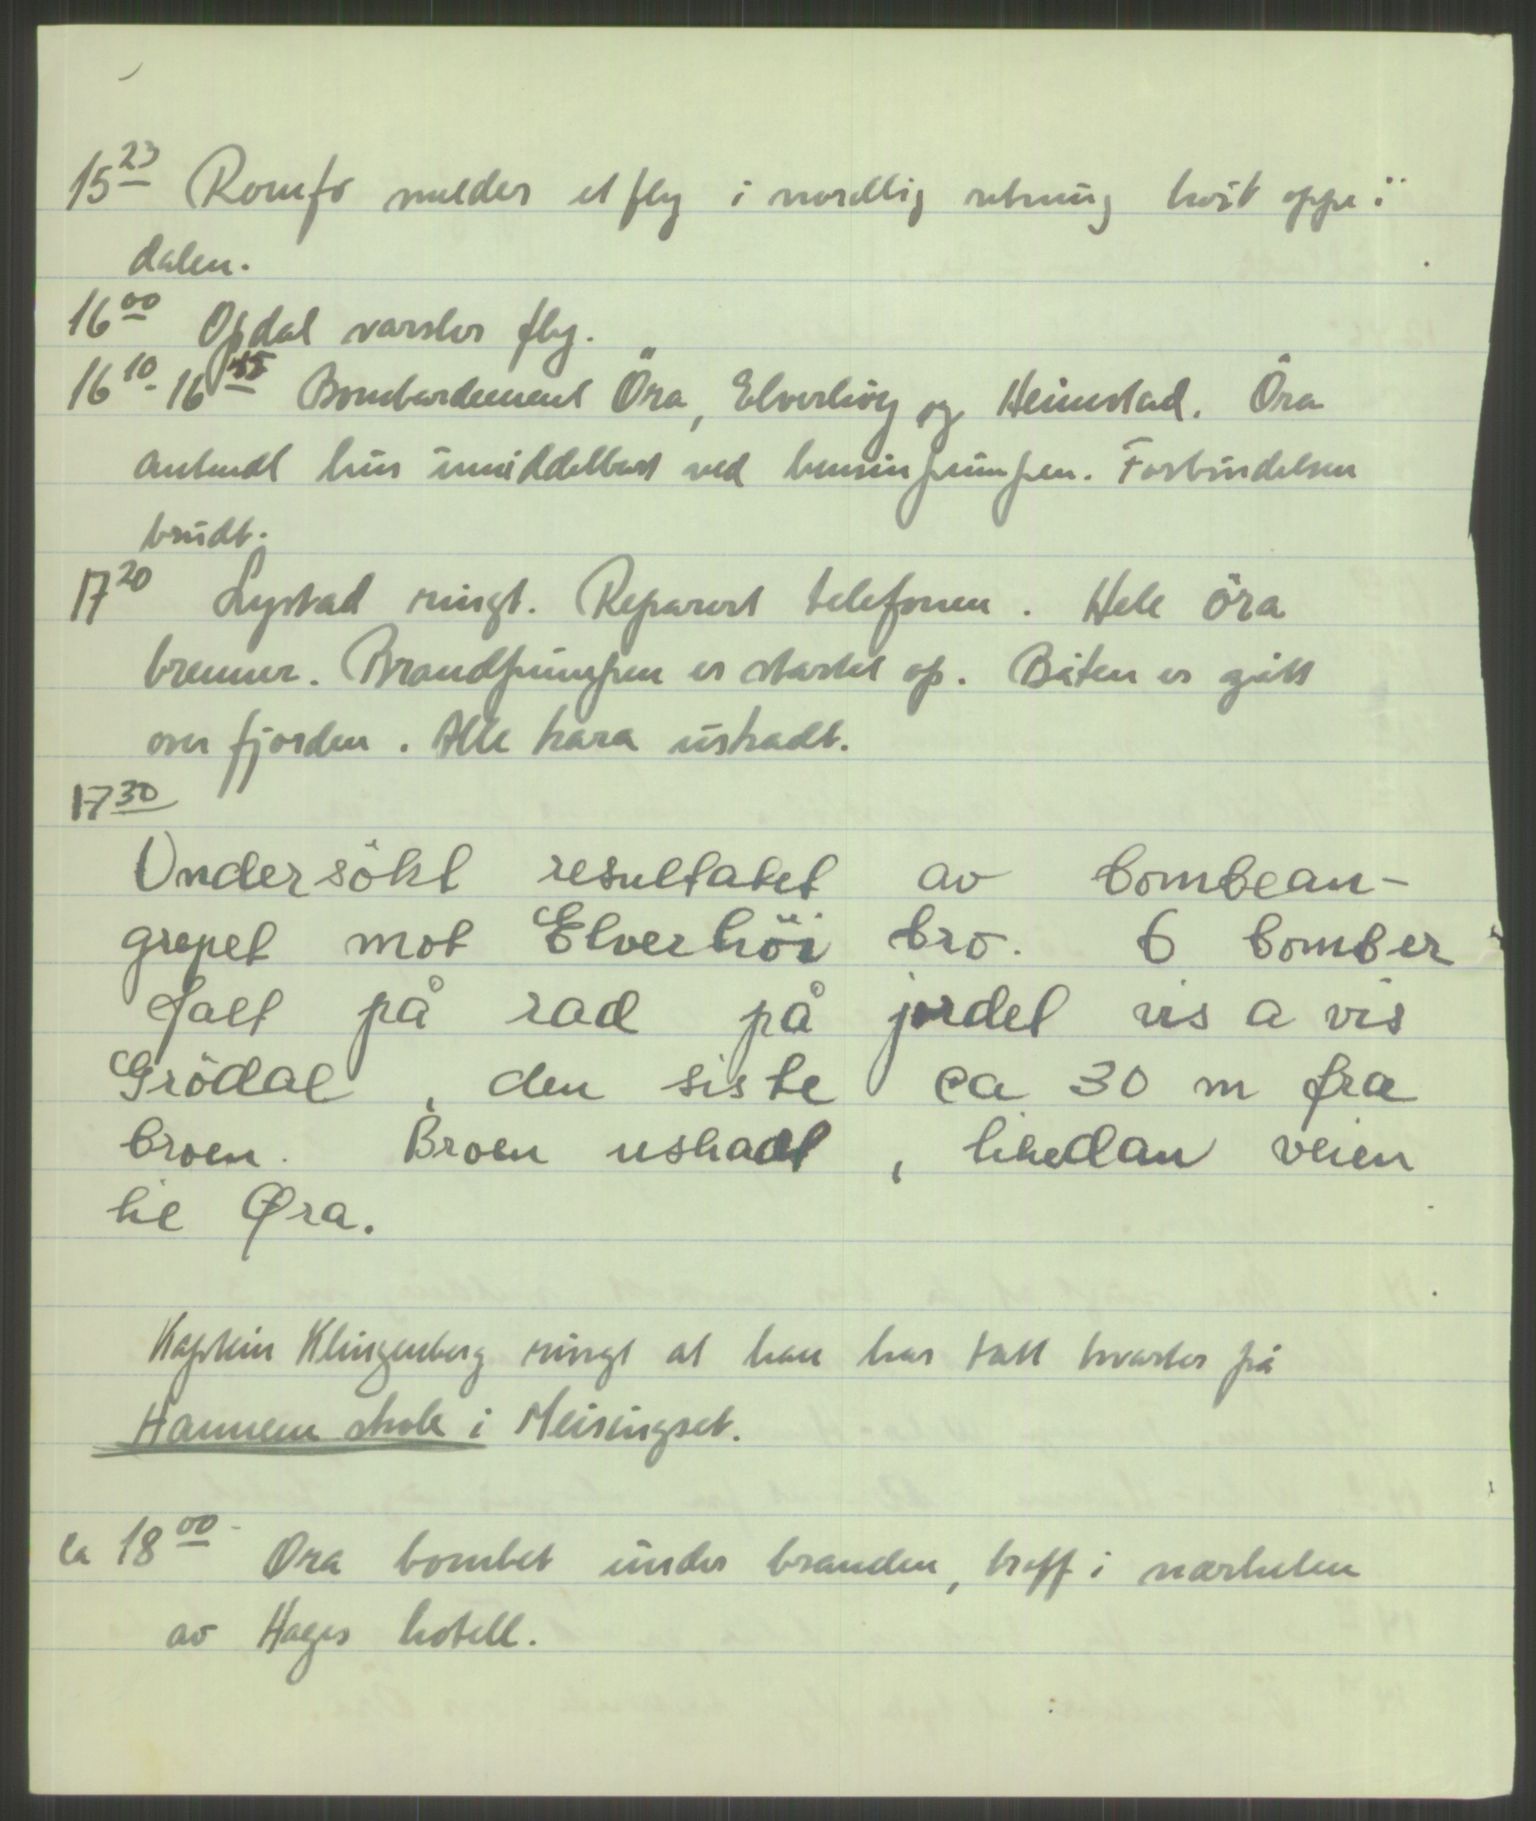 15 23 Romfo melder et fly i nordlig retning höit oppe i
dalen.
16 00 Opdal varsler fly.
16 10 - 16 45 Bombardement Öra, Elverhöy og Heimstad. Öra
antendt hus umiddelbart ved bensinpumpen. Forbindelsen
brudt.
17 20 Lystad ringt. Reparert telefonen. Hele öra
brenner. Brandpumpen er startet op. Båten er gått
over fjorden. Alle kara uskadt.
17 30
Undersökt resultatet av bombean-
grepet mot Elverhöi bro. 6 bomber
falt på rad på jordet vis a vis
Grödal, den siste ca 30 m fra
broen. Broen uskadt, likedan veien
til Øra.
Kaptein Klingenberg ringt at han har tatt kvarter på
Hannem skole i Meisingset.
ca 18 00 Öra bombet under branden, treff i nærheten
av Hages hotell.